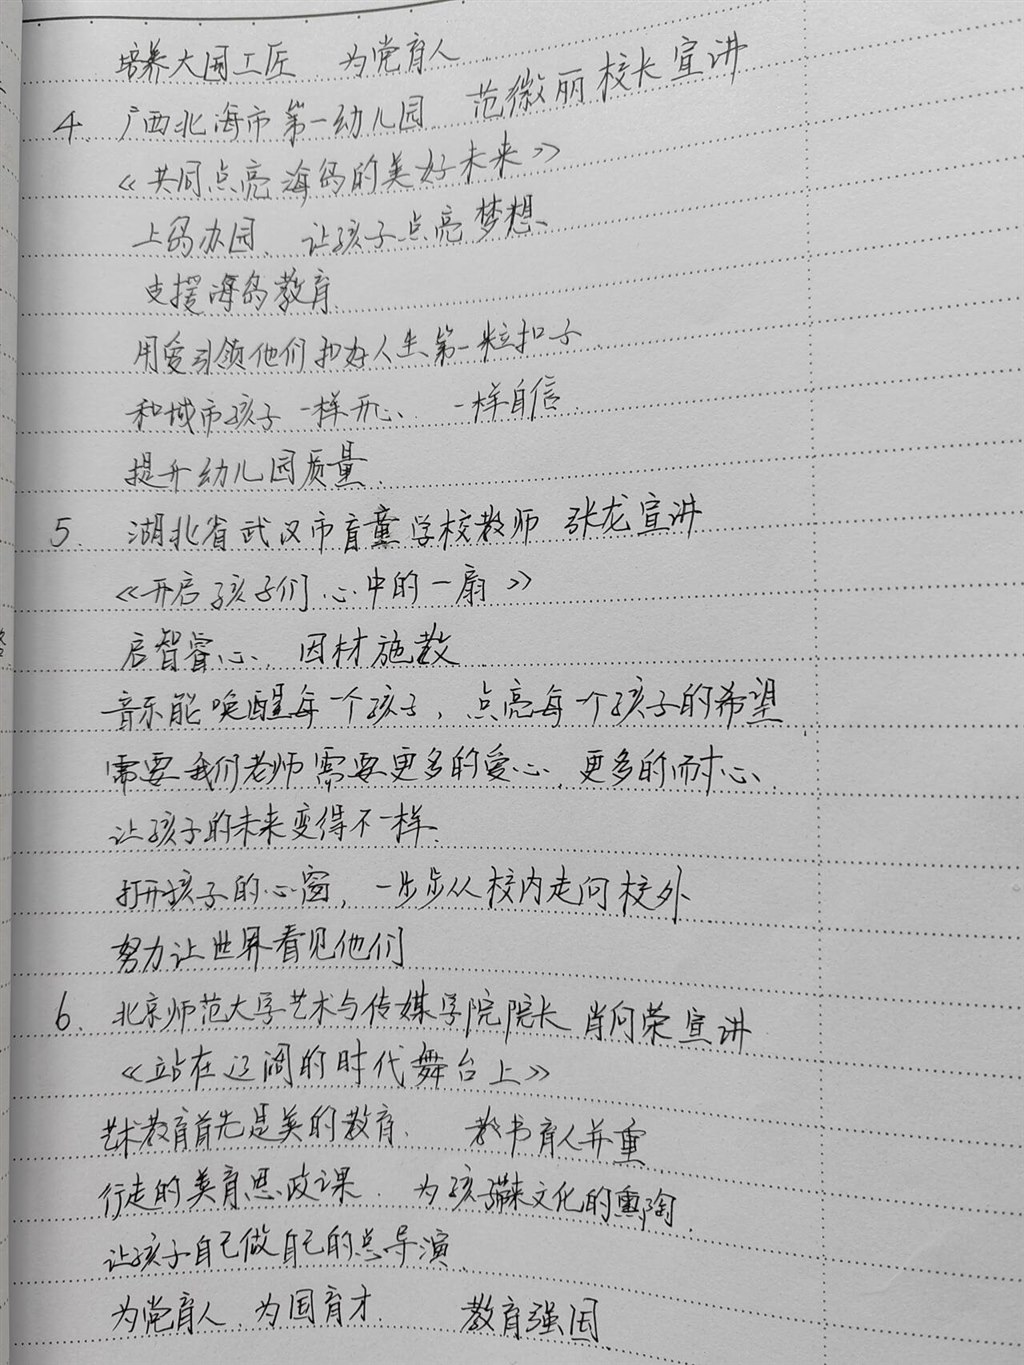 培养大国工匠 为党育人
4. 广西北海市第一幼儿园 范徽丽校长宣讲
《共同点亮海岛的美好未来》
上岛办园、让孩子点亮梦想、
支援海岛教育
用爱引领他们扣好人生第一粒扣子
和城市孩子一样开心、一样自信
提升幼儿园质量.
5. 湖北省武汉市盲童学校教师 张龙宣讲
《开启孩子们心中的一扇》
启智睿心、因材施教
音乐能唤醒每一个孩子，点亮每一个孩子的希望
需要我们老师需要更多的爱心、更多的耐心、
让孩子的未来变得不一样.
打开孩子的心窗，一步步从校内走向校外
努力让世界看见他们
6. 北京师范大学艺术与传媒学院院长 肖向荣宣讲
《站在辽阔的时代舞台上》
艺术教育首先是美的教育. 教书育人并重
行走的美育思政课. 为孩子带来文化的熏陶.
让孩子自己做自己的总导演
为党育人、为国育才. 教育强国